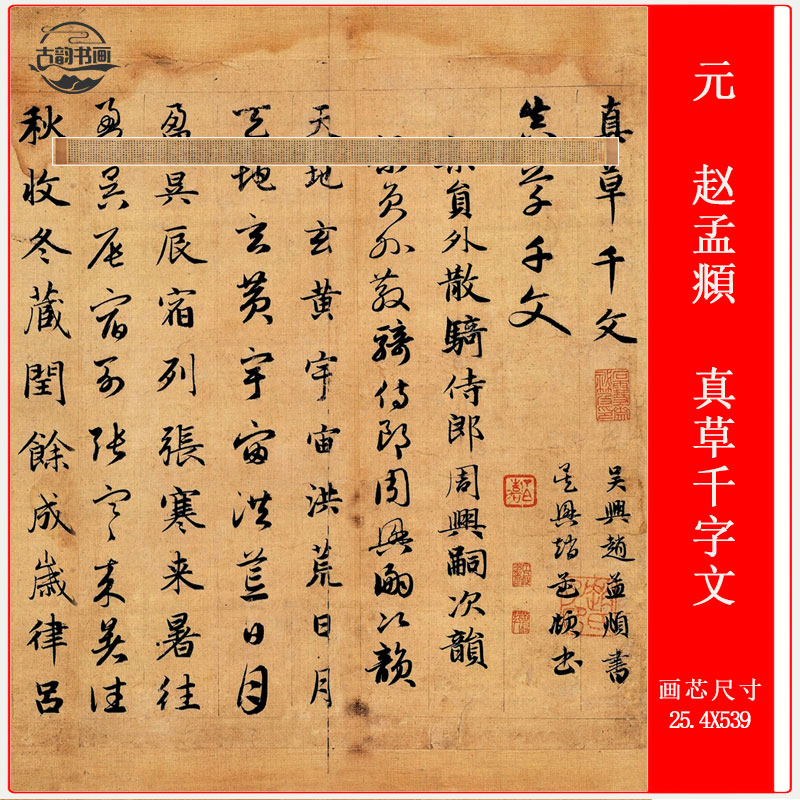 古韵书画
元 赵孟頫 真草千字文
画芯尺寸
25.4X539
真草千文
吴興趙孟頫書
真草千文
吴興趙孟頫書
員外散騎侍郎周興嗣次韻
員外散騎侍郎周興嗣次韻
天地玄黄宇宙洪荒日月
天地玄黄宇宙洪荒日月
盈昃辰宿列張寒来暑往
盈昃辰宿列張寒来暑往
秋收冬藏閏餘成歲律吕